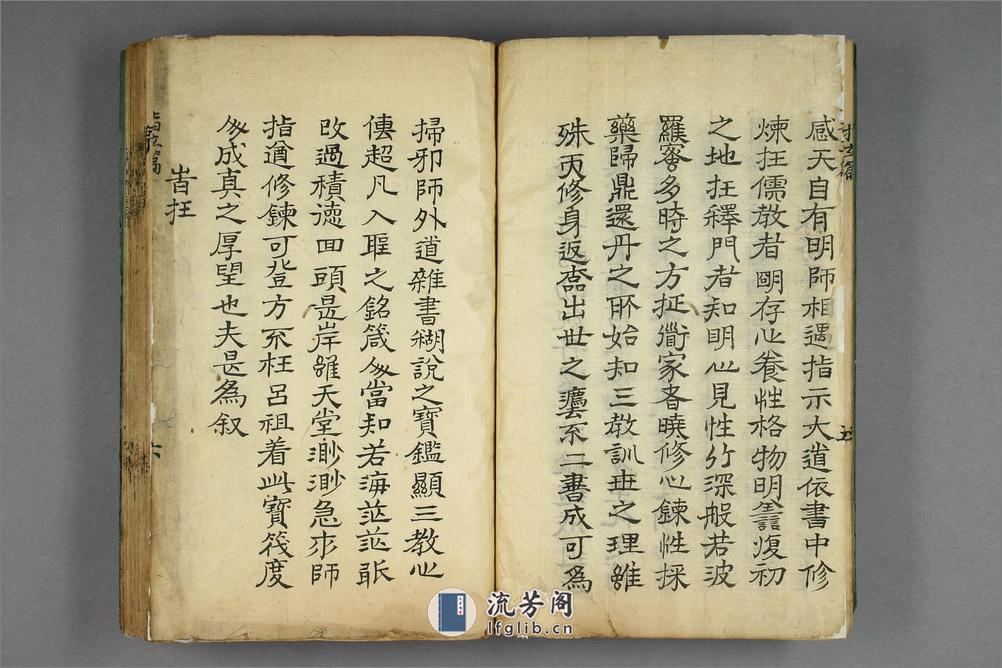 指玄篇
五
感天自有明師相遇指示大道依書中修
煉在儒教者明存心養性格物明善復初
之地在釋門者知明心見性行深般若波
羅蜜多時之方在衜家者曉修心鍊性採
藥歸鼎還丹之所始知三教訓世之理雖
殊而修身返本出世之處不二書成可為
掃邪師外道雜書糊說之寶鑑顯三教心
傳超凡入聖之銘箴 當知苦海茫茫
改過積德回頭是岸雖天堂渺渺急求師
指 修鍊可登方不枉呂祖着此寶筏度
成真之厚望也夫是為叙
旹在
六
流芳阁
lfglib.cn